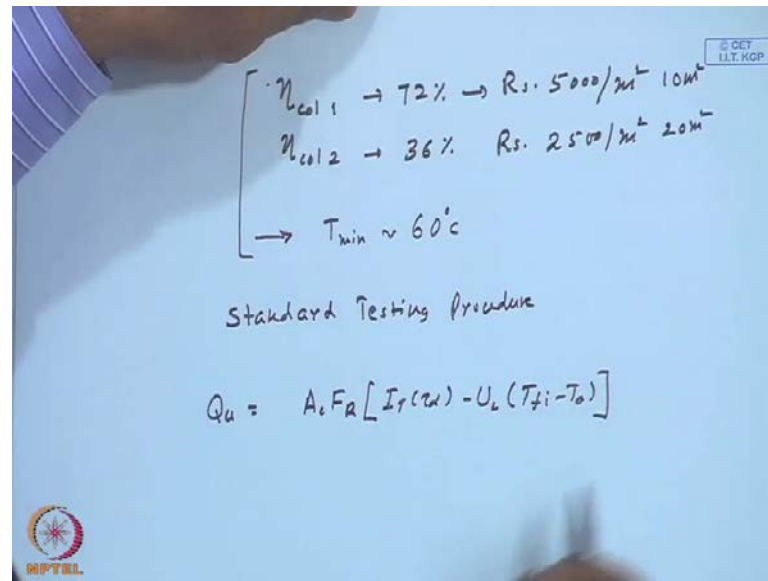 © CET
I.I.T. KGP
η col 1 → 72% → Rs. 5000/m² 10m²
η col 2 → 36% Rs. 2500/m² 20m²
→ Tmin ~ 60°C
Standard Testing Procedure
Qu = Ac FR [IT(τα) - UL (Tfi - Ta)]
NPTEL